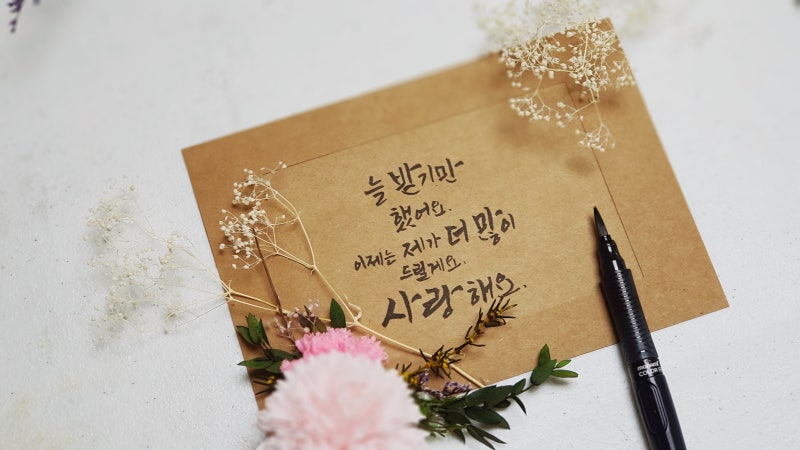 늘 받기만
했어요.
이제는 제가 더 많이
드릴게요.
사랑해요.